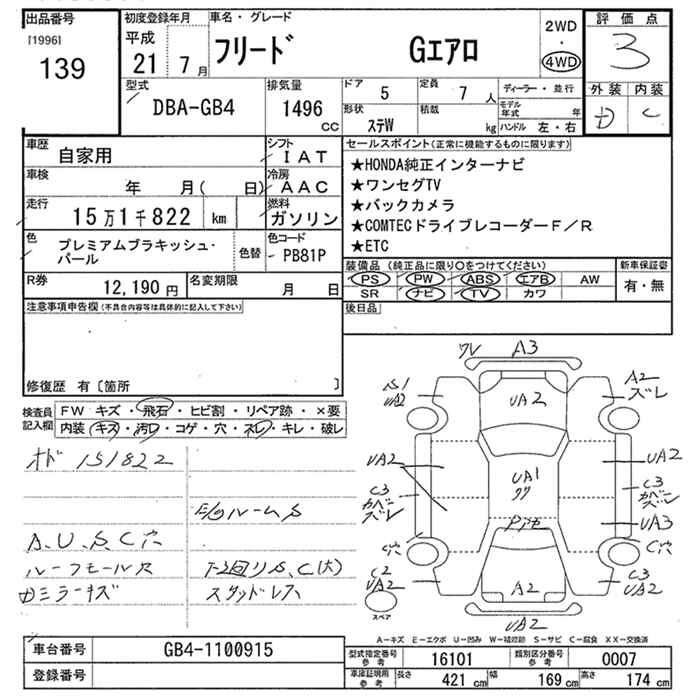 出品番号 初度登録年月 車名・グレード 2WD 評価点
[1996] 平成 フリード Gエアロ ・ 3
139 21 7月 4WD
型式 排気量 ドア 5 定員 7人 ディーラー・並行 外装 内装
DBA-GB4 1496 cc 形状 ステW 積載 kg モデル年式 年 D C
ハンドル 左・右
車歴 自家用 シフト IAT セールスポイント(正常に機能するものに限ります)
車検 年 月( 日) 冷房 AAC ★HONDA純正インターナビ
走行 15万1千822 km 燃料 ガソリン ★ワンセグTV
★バックカメラ
色 プレミアムブラキッシュ・パール 色替 色コード PB81P ★COMTECドライブレコーダーF/R
★ETC
R券 12,190円 名変期限 月 日 装備品(純正品に限り○をつけてください) 新車保証書
PS PW ABS エアB AW 有・無
SR ナビ TV カワ
注意事項申告欄(不具合内容等は具体的に記入して下さい) 後日品
修復歴 有〔箇所 〕
検査員記入欄 FW キズ・飛石・ヒビ割・リペア跡・×要
内装(キズ・汚れ・コゲ・穴・スレ・キレ・破レ
ワレ A3
UA2 UA2 A2
ズレ
オド 151822
UA2 UA1 UA2
C3 C3
カベ
ズレ ズレ
E/Gルーム S
UA3
A、U、S、C穴 C穴 C穴
ルーフモールヌ 下回りS、C(大) C2 C3
Dミラーキズ スタッドレス UA2 A2 UA2
スペア UA2
A-キズ E-エクボ U-凹み W-補修跡 S-サビ C-腐食 XX-交換済
車台番号 GB4-1100915 型式指定番号 参考 16101 類別区分番号 参考 0007
登録番号 車庫証明用 参考 長さ 421 cm 幅 169 cm 高さ 174 cm